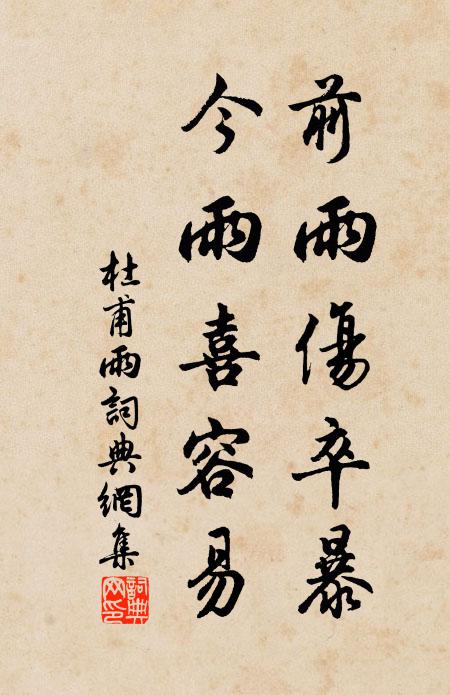 前雨傷卒暴
今雨喜容易
杜甫雨詞典網集
詞典網印